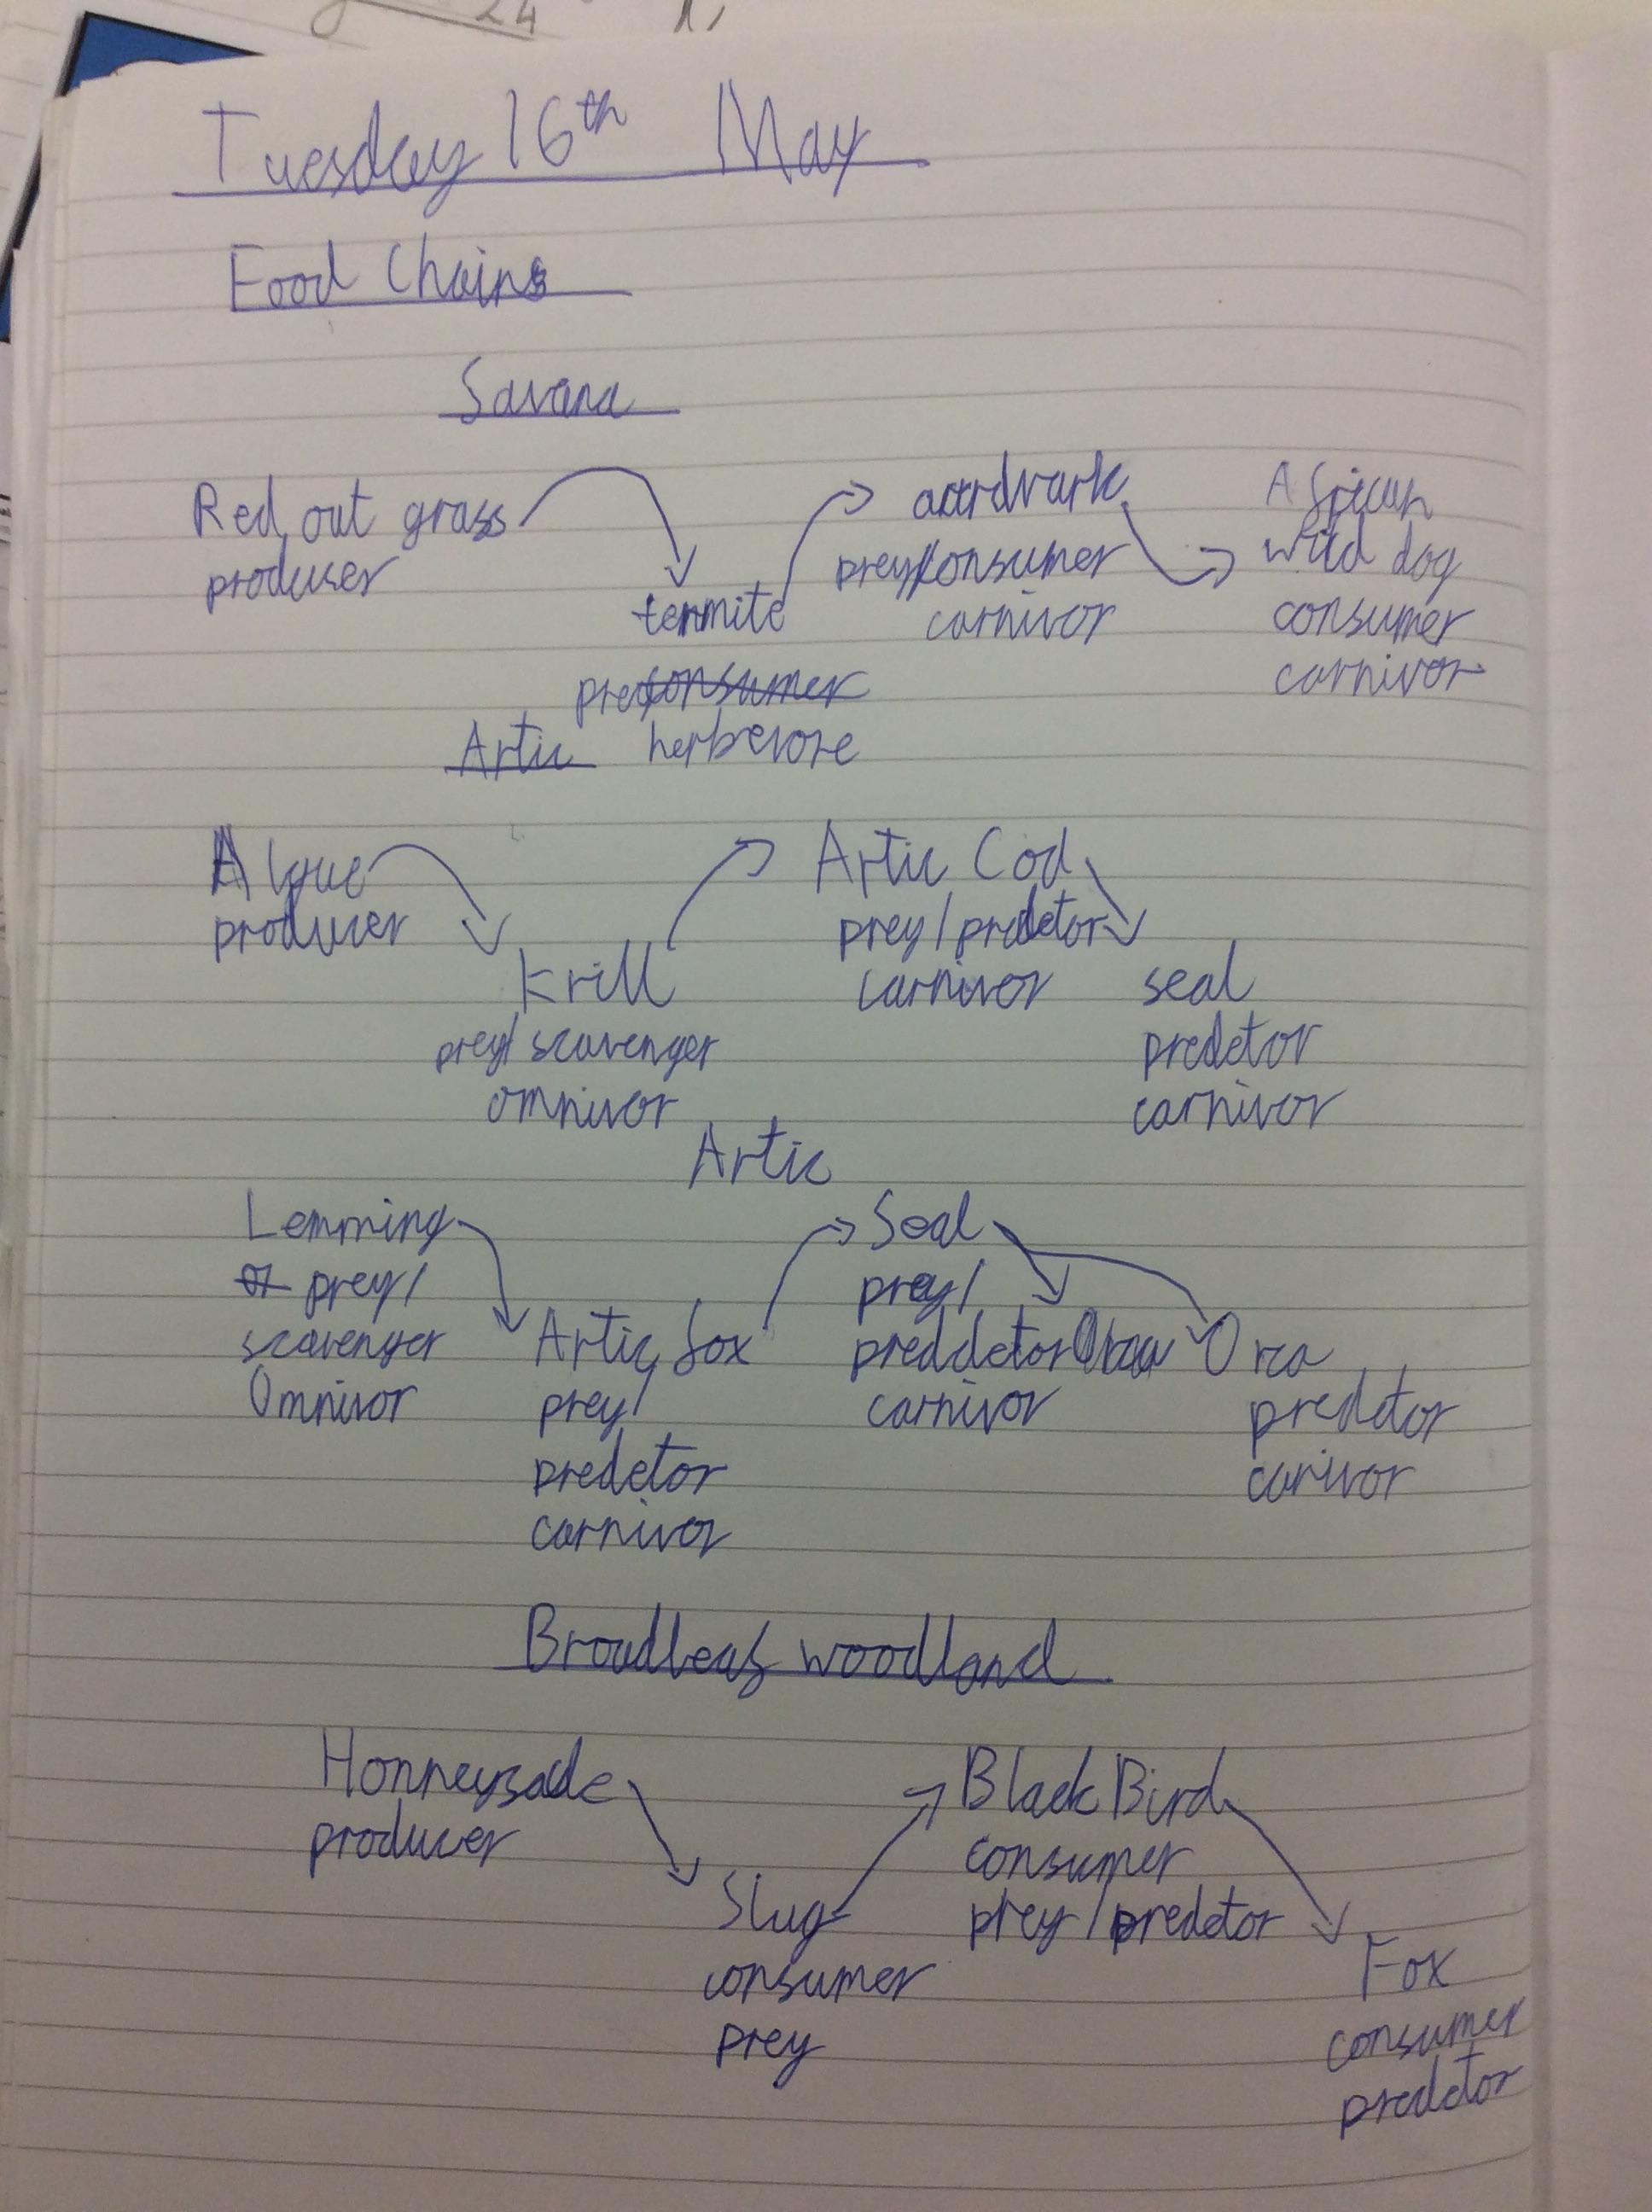 24
Tuesday 16th May
Food Chains
Savana
Red out grass
produser
termite
prey/consumer
herbevore
aardvark
prey/consumer
carnivor
African
wild dog
consumer
carnivor
Artic
Algue
producer
Krill
prey/scavenger
omnivor
Artic Cod
prey/predetor
carnivor
seal
predetor
carnivor
Artic
Lemming
or prey/
scavenger
Omnivor
Artic fox
prey/
predetor
carnivor
Seal
prey/
preddetor
carnivor
Orca
predetor
carivor
Broadleaf woodland
Honneysade
producer
Slug
consumer
prey
Black Bird
consumer
prey/predetor
Fox
consumer
predetor